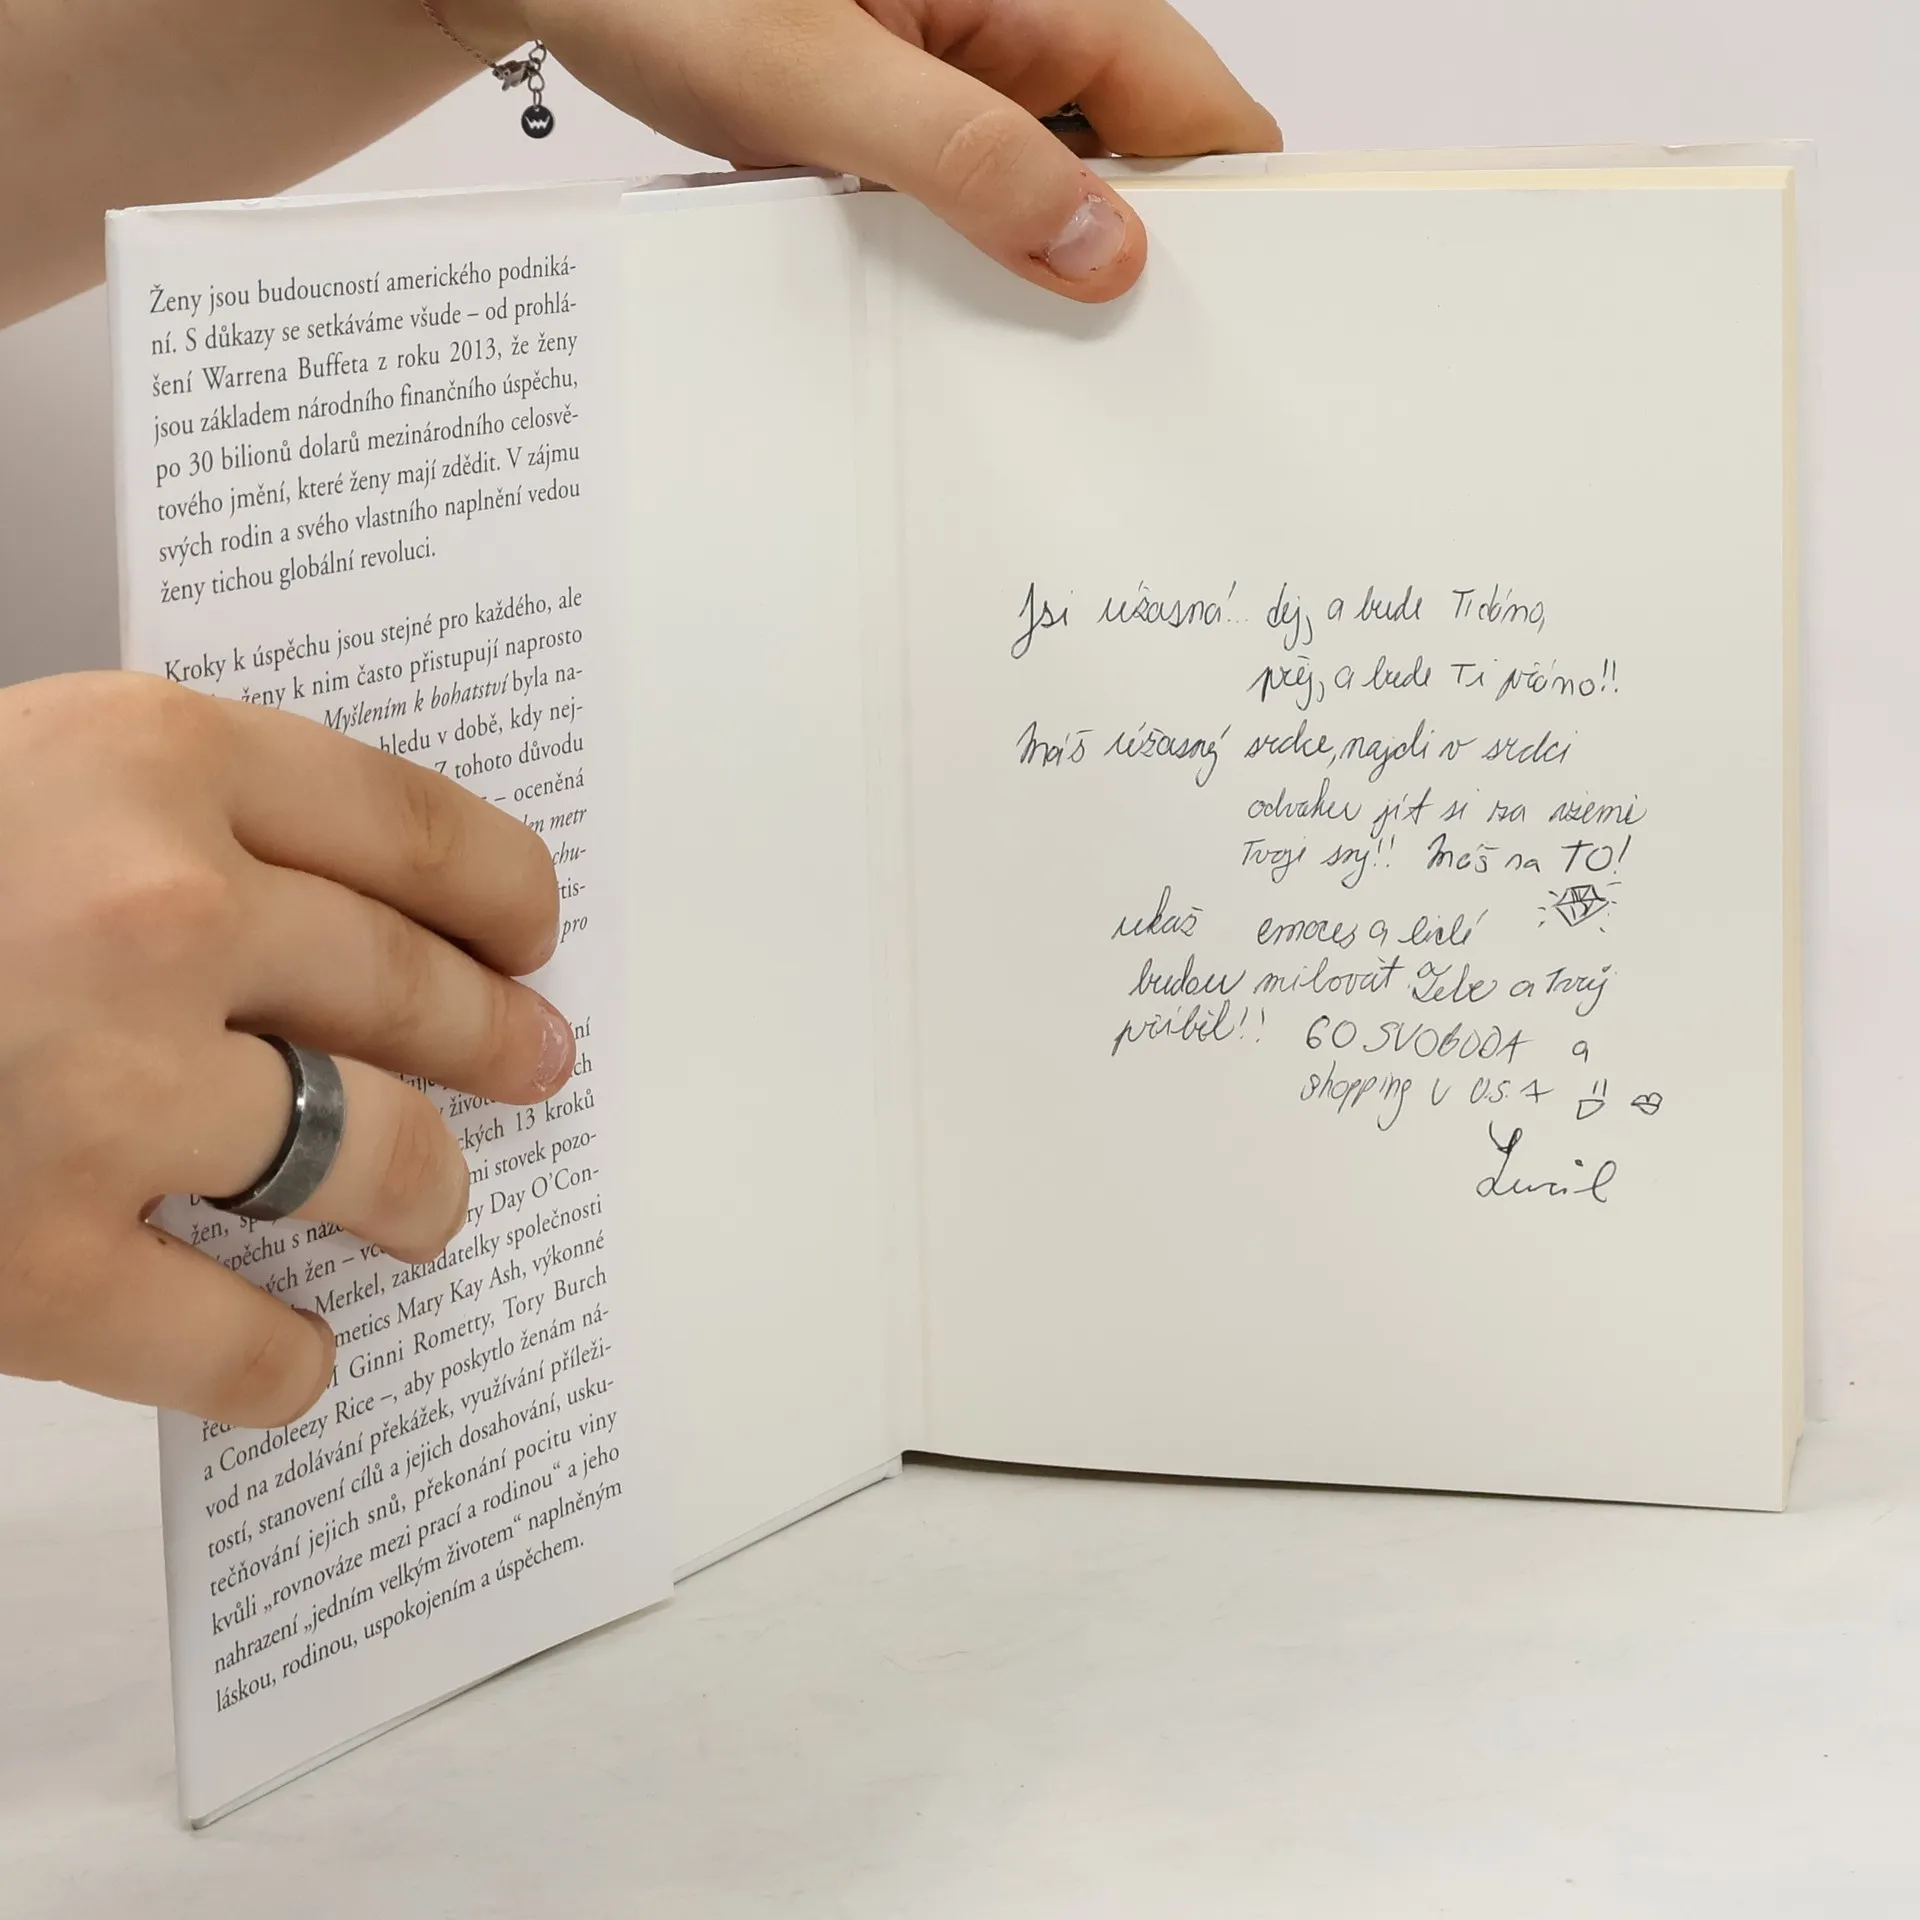 Ženy jsou budoucností amerického podniká-
ní. S důkazy se setkáváme všude – od prohlá-
šení Warrena Buffeta z roku 2013, že ženy
jsou základem národního finančního úspěchu,
po 30 bilionů dolarů mezinárodního celosvě-
tového jmění, které ženy mají zdědit. V zájmu
svých rodin a svého vlastního naplnění vedou
ženy tichou globální revoluci.
Kroky k úspěchu jsou stejné pro každého, ale
ženy k nim často přistupují naprosto
Myšlením k bohatství byla na-
hledu v době, kdy nej-
Z tohoto důvodu
– oceněná
metr
chu-
tis-
pro
ní
ch
život
ckých 13 kroků
mi stovek pozo-
ry Day O’Con-
žen,
spěchu s náz
vých žen – 
Merkel, zakladatelky společnosti
metics Mary Kay Ash, výkonné
M Ginni Rometty, Tory Burch
a Condoleezy Rice –, aby poskytlo ženám ná-
vod na zdolávání překážek, využívání příleži-
tostí, stanovení cílů a jejich dosahování, usku-
tečňování jejich snů, překonání pocitu viny
kvůli „rovnováze mezi prací a rodinou“ a jeho
nahrazení „jedním velkým životem“ naplněným
láskou, rodinou, uspokojením a úspěchem.
Jsi úžasná!.. dej, a bude Ti dáno,
přej, a bude Ti přáno!!
Máš úžasný srdce, najdi v srdci
odvahu jít si za všemi
Tvoje sny!! Máš na TO!
ukaž emoces a lidé
budou milovat Tebe a Tvůj
příběh!! GO SVOBODA a
shopping v U.S.A